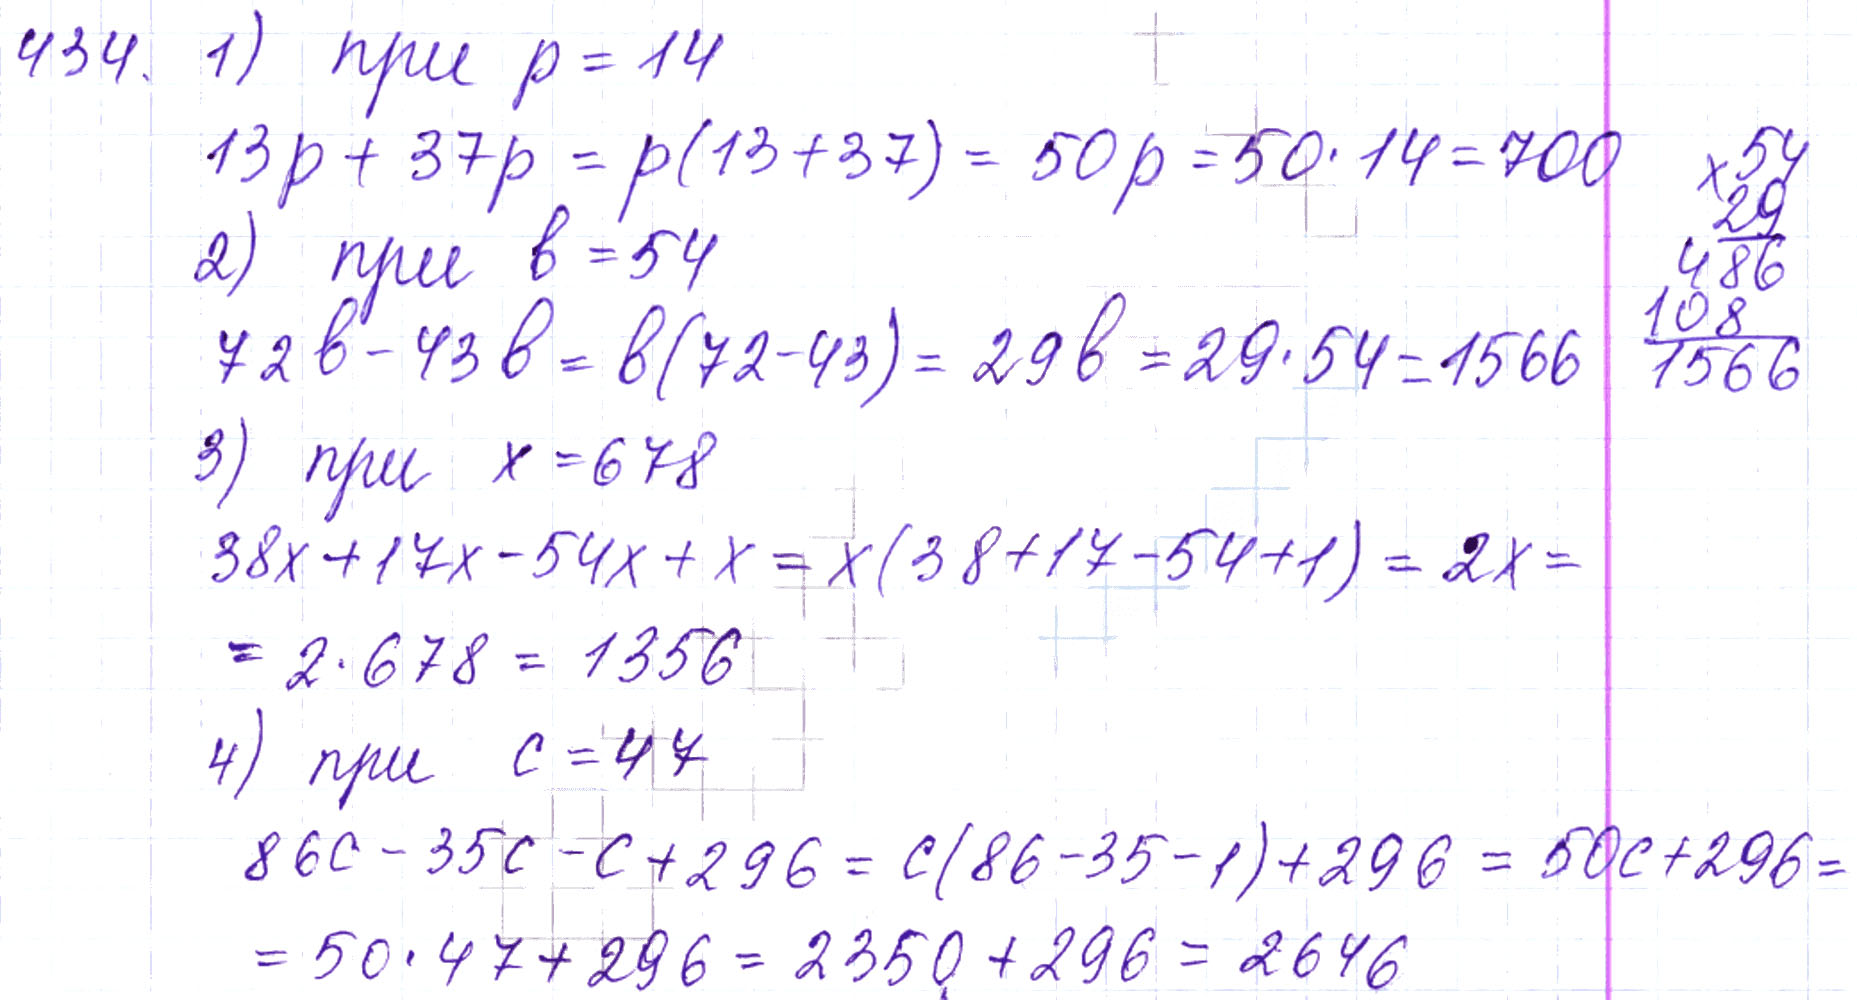 434. 1) при p = 14
13p + 37p = p(13+37) = 50p = 50·14 = 700
2) при b = 54
72b - 43b = b(72-43) = 29b = 29·54 = 1566
3) при x = 678
38x + 17x - 54x + x = x(38+17-54+1) = 2x =
= 2·678 = 1356
4) при c = 47
86c - 35c - c + 296 = c(86-35-1) + 296 = 50c + 296 =
= 50·47 + 296 = 2350 + 296 = 2646
x 54
29
486
108
1566